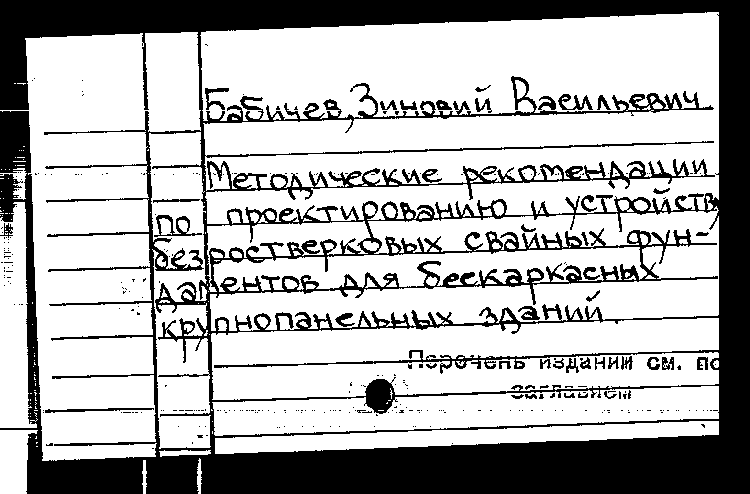 Бабичев, Зиновий Васильевич
Методические рекомендации
по проектированию и устройству
безростверковых свайных фун-
даментов для бескаркасных
крупнопанельных зданий.
Перечень изданий см. по
заглавием